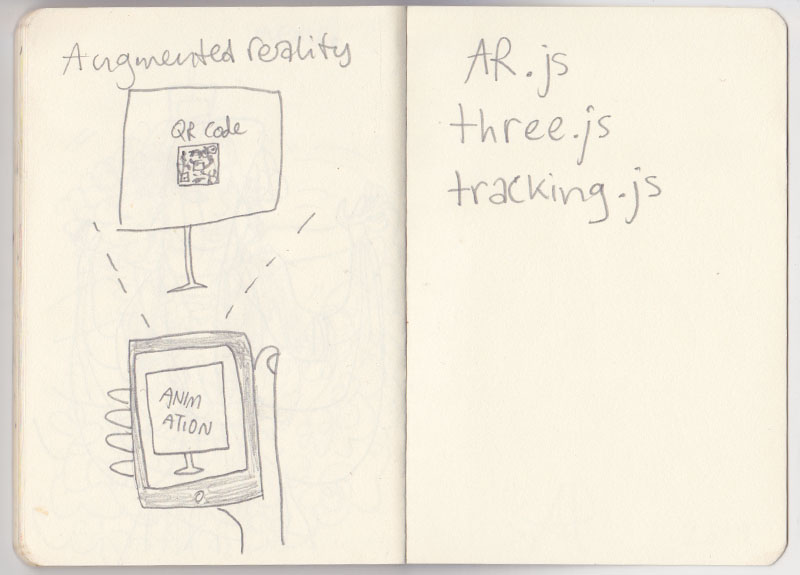 Augmented reality
QR Code
ANIM
ATION
AR.js
three.js
tracking.js